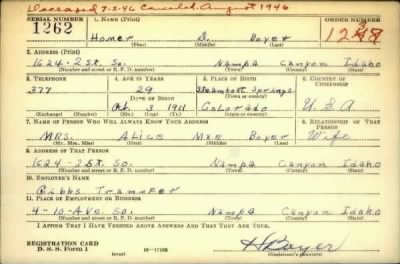 Deceased 7-2-46 Canceled August 1946
SERIAL NUMBER 1. NAME (Print) ORDER NUMBER
1262 Homer D Boyer 1248
(First) (Middle) (Last)
2. ADDRESS (Print)
1624-2 St. So. Nampa Canyon Idaho
(Number and street or R. F. D. number) (Town) (County) (State)
3. TELEPHONE 4. AGE IN YEARS 5. PLACE OF BIRTH 6. COUNTRY OF CITIZENSHIP
377 29 Steamboat Springs
DATE OF BIRTH
Oct. 3 1911 Colorado U.S.A
(Exchange) (No.) (Mo.) (Day) (Yr.) (State or country)
7. NAME OF PERSON WHO WILL ALWAYS KNOW YOUR ADDRESS 8. RELATIONSHIP OF THAT PERSON
Mrs. Alice Mae Boyer Wife
(Mr., Mrs., Miss) (First) (Middle) (Last)
9. ADDRESS OF THAT PERSON
1624-2 St. So. Nampa Canyon Idaho
(Number and street or R. F. D. number) (Town) (County) (State)
10. EMPLOYER'S NAME
Gibbs Transfer
11. PLACE OF EMPLOYMENT OR BUSINESS
4-10-Ave So. Nampa Canyon Idaho
(Number and street or R. F. D. number) (Town) (County) (State)
I AFFIRM THAT I HAVE VERIFIED ABOVE ANSWERS AND THAT THEY ARE TRUE.
REGISTRATION CARD
D. S. S. Form 1 16-17105 H Boyer
(over) (Registrant's signature)